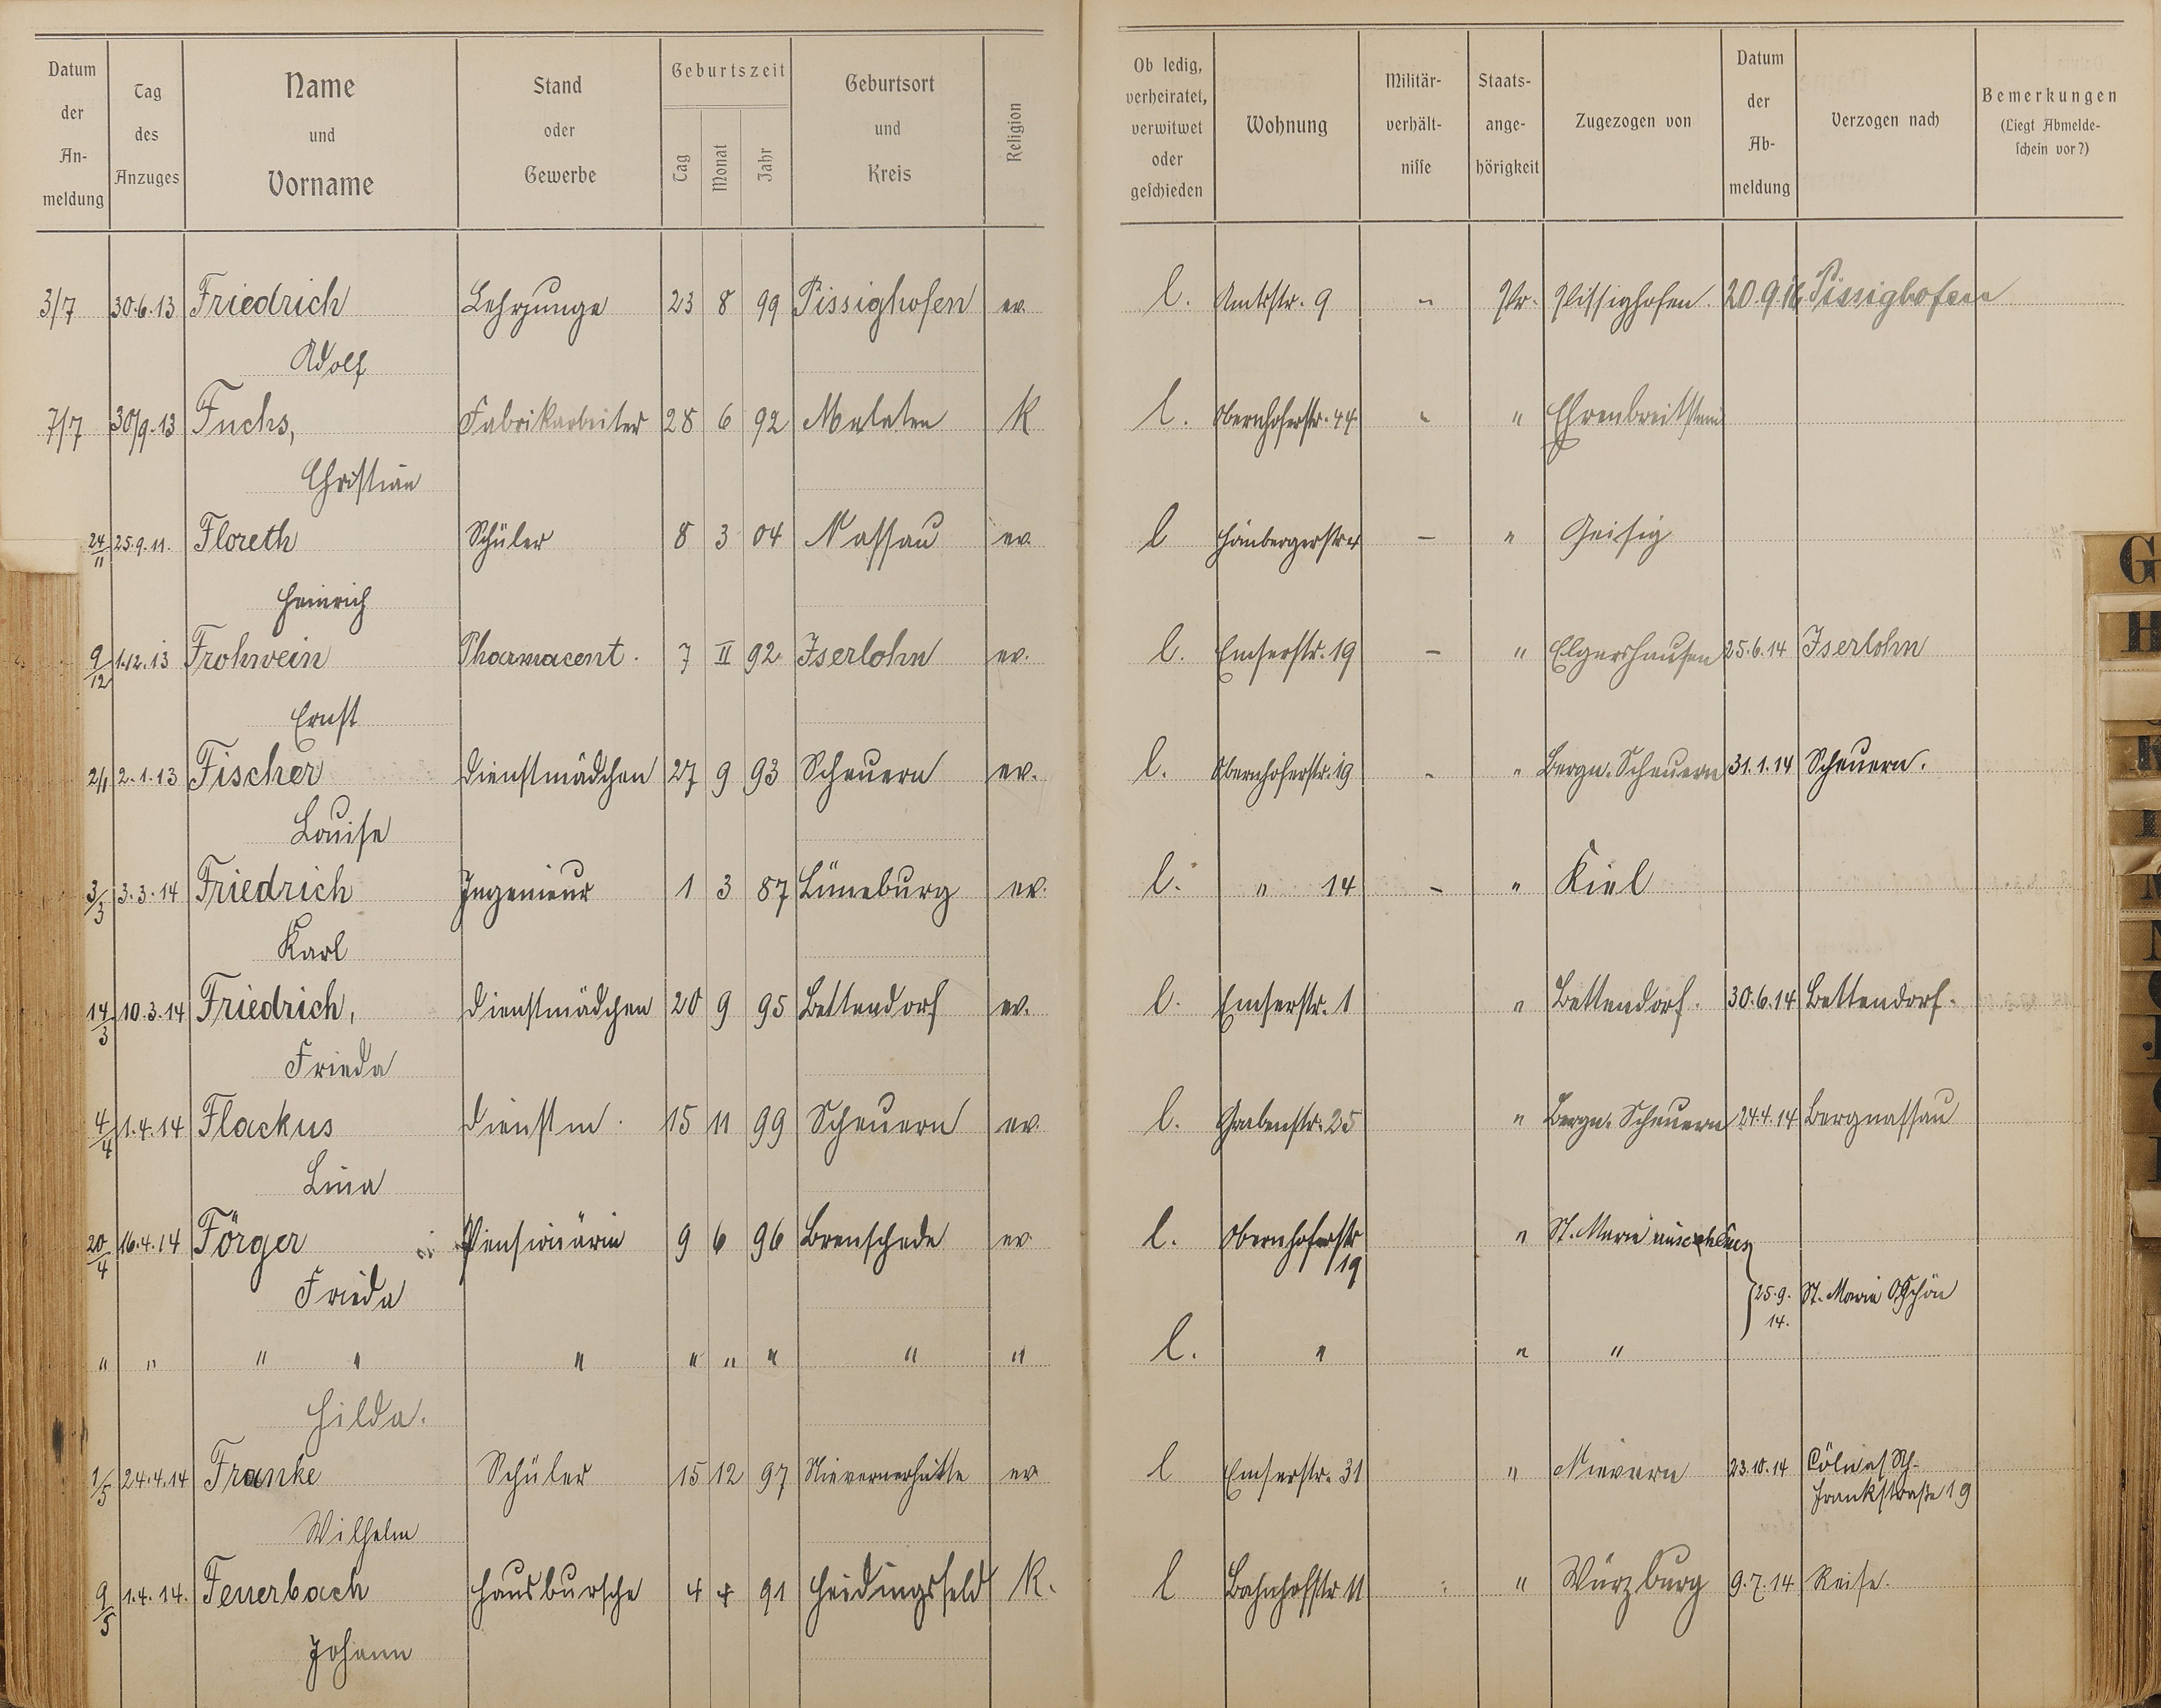 Datum der An- meldung | Tag des Anzuges | Name und Vorname | Stand oder Gewerbe | Geburtszeit Tag Monat Jahr | Geburtsort und Kreis | Religion | Ob ledig, verheiratet, verwitwet oder geschieden | Wohnung | Militär- verhält- nisse | Staats- ange- hörigkeit | Zugezogen von | Datum der Ab- meldung | Verzogen nach | Bemerkungen (Liegt Abmelde- schein vor?)
3/7 30.6.13 Friedrich Lehrjunge 23 8 99 Pissighofen ev. l. Amtsstr. 9 " Pr. Pissighofen. 20.9.16 Pissighofen
Adolf
7/7 30/9.13 Fuchs, Fabrikarbeiter 28 6 92 K l. Obernhoferstr. 44 " " Ehrenbreitstein
Christian
24/11 25.9.11. Floreth Schüler 8 3 04 Nassau ev. l – " Geisig
Heinrich
9/12 1.12.13 Frohwein Pharmaceut. 7 II 92 Iserlohn ev. l. Emserstr. 19 – " Elgershausen 25.6.14 Iserlohn
Ernst
2/1 2.1.13 Fischer Dienstmädchen 27 9 93 Scheuern ev. l. Obernhoferstr. 19 - " Bergn. Scheuern 31.1.14 Scheuern.
Louise
3/3 3.3.14 Friedrich Ingenieur 1 3 87 Lüneburg ev. l. " 14 – " Kiel
Karl
14/3 10.3.14 Friedrich, Dienstmädchen 20 9 95 Bettendorf ev. l. Emserstr. 1 " Bettendorf. 30.6.14 Bettendorf.
Frieda
4/4 1.4.14 Flackus Dienstm. 15 11 99 Scheuern ev. l. Grabenstr. 25 " Bergn. Scheuern 24.4.14 Bergnassau
Lina
20/4 16.4.14 Förger Pensionärin 9 6 96 Brenschede ev l. Obernhoferstr 19 " St. Marie
Frieda 25.9. 14. St. Marie
" " " " " " " " " " l. " " "
Hilda.
1/5 24.4.14 Franke Schüler 15 12 97 Nievernerhütte ev l Emserstr. 31 " Nievern 23.10.14 Cöln a/Rh.
Frankstraße 19
Wilhelm
9/5 1.4.14. Feuerbach Hausbursche 4 4 91 Heidingsfeld K. l Bahnhofstr 11 " Würzburg 9.7.14 Reise.
Johann
G
H
K
M
N